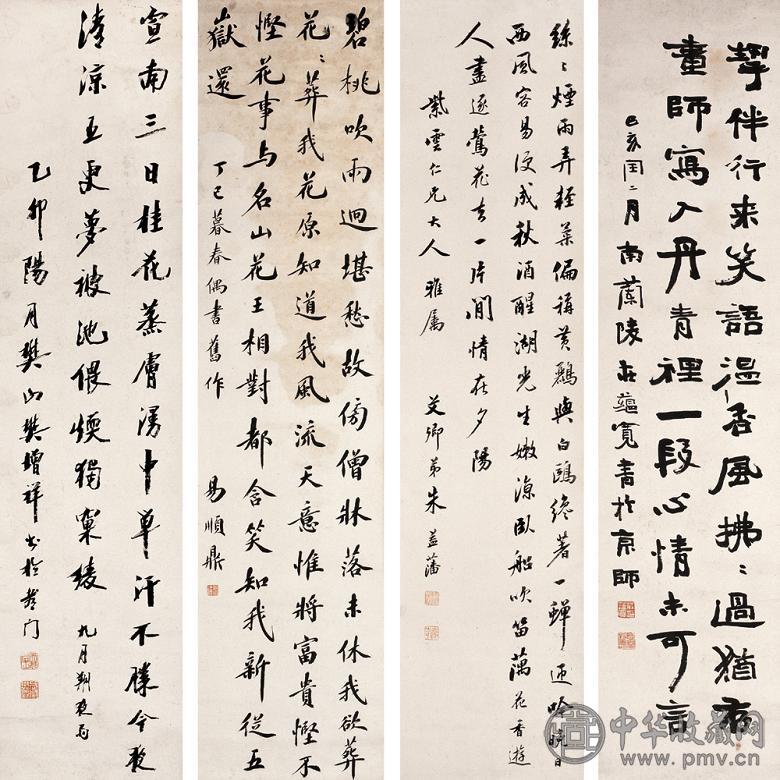 挈伴行来笑語温香風拂〻過猶存
畫師寫入丹青裡一段心情未可言
閏二月南蘭陵莊藴寬書於京師
絲〻煙雨弄輕柔偏稱黃鸝與白鷗纔著一蟬晚日
西風容易便成秋酒醒湖光生嫩涼臥船吹笛藕花香遊
人盡逐鶯花去一片閒情在夕陽
紫雲仁兄大人雅屬
艾卿弟朱益藩
碧桃吹雨迥堪愁故傍僧牀落未休我欲葬
花〻葬我花原知道我風流天意惟將富貴慳不
慳花事与名山花王相對都含笑知我新從五
嶽還
丁巳暮春偶書舊作
易順鼎
宣南三日桂花蒸膚湯中單汗不勝今夜
清涼五更夢被池偎煖獨綾
九月朔夜
乙卯陽月樊山樊增祥書於都門
中华收藏网
www.pmv.cn